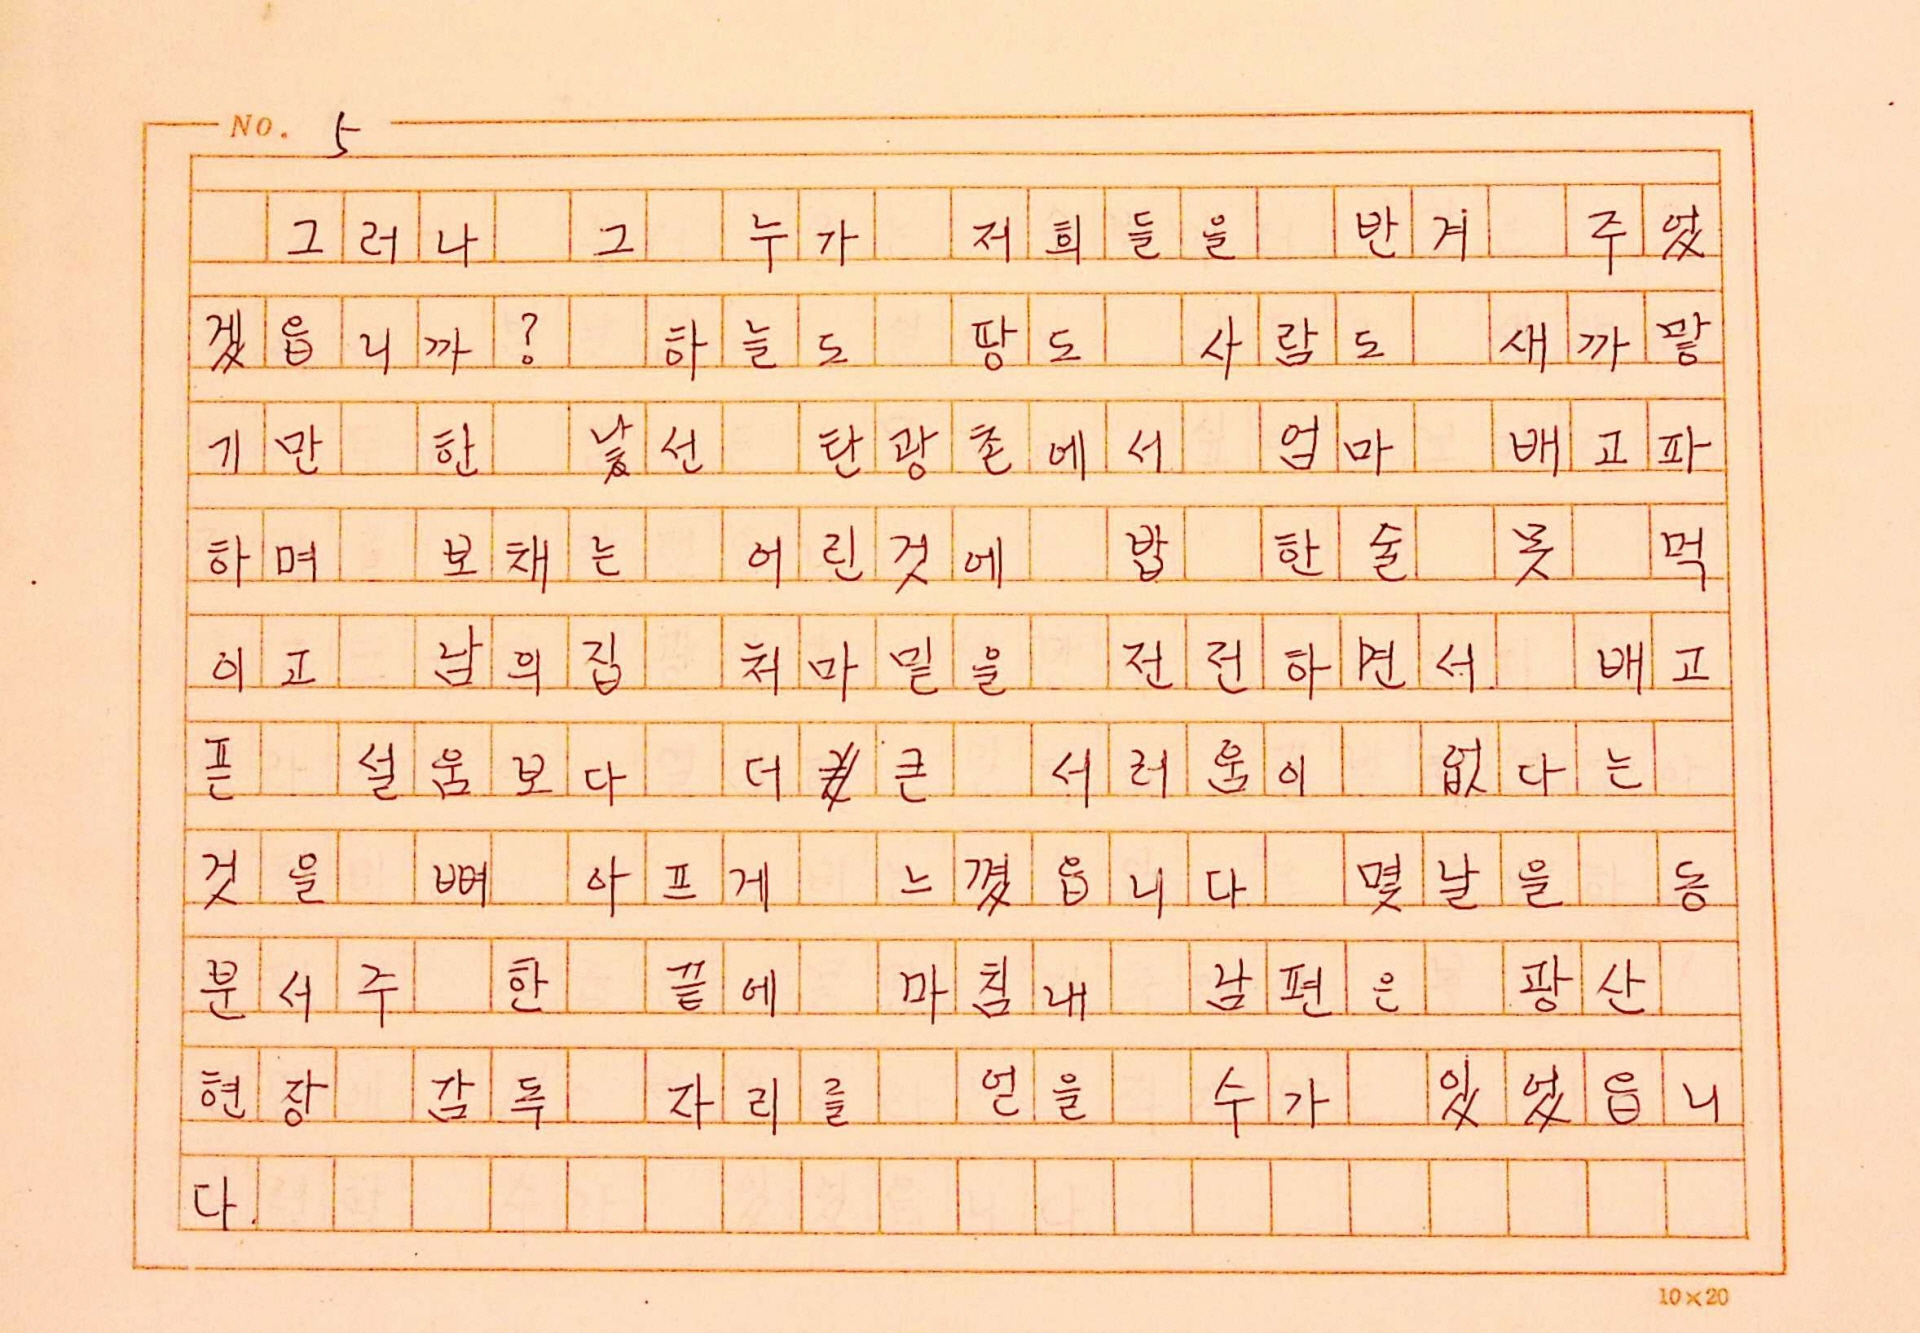 No. 5
그러나 그 누가 저희들을 반겨 주었
겠읍니까? 하늘도 땅도 사람도 새까맣
기만 한 낯선 탄광촌에서 엄마 배고파
하며 보채는 어린것에 밥 한술 못 먹
이고 남의집 처마밑을 전전하면서 배고
픈 설움보다 더 큰 서러움이 없다는
것을 뼈 아프게 느꼈읍니다 몇날을 동
분서주 한 끝에 마침내 남편은 광산
현장 감독 자리를 얻을 수가 있었읍니
다.
10×20